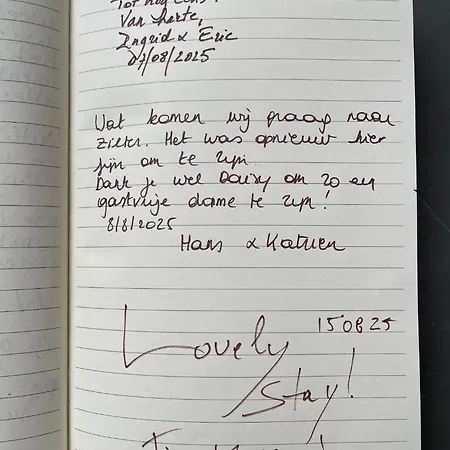 Tot nog eens!
Van harte,
Ingrid & Eric
07/08/2025
Wat komen wij graag naar
Zillen. Het was opnieuw hier
fijn om te zijn.
Dank je wel Daisy om zo een
gastvrije dame te zijn!
8/8/2025
Hans & Katrien
15 08 25
Lovely
Stay!